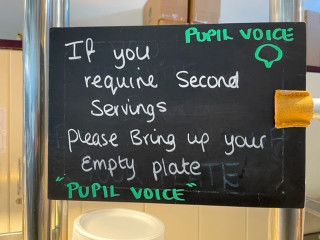 PUPIL VOICE
If you
require Second
Servings
Please Bring up your
Empty plate
"PUPIL VOICE"